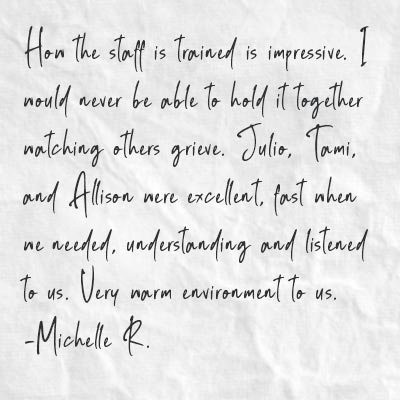 How the staff is trained is impressive. I
would never be able to hold it together
watching others grieve. Julio, Tami,
and Allison were excellent, fast when
we needed, understanding and listened
to us. Very warm environment to us.
-Michelle R.